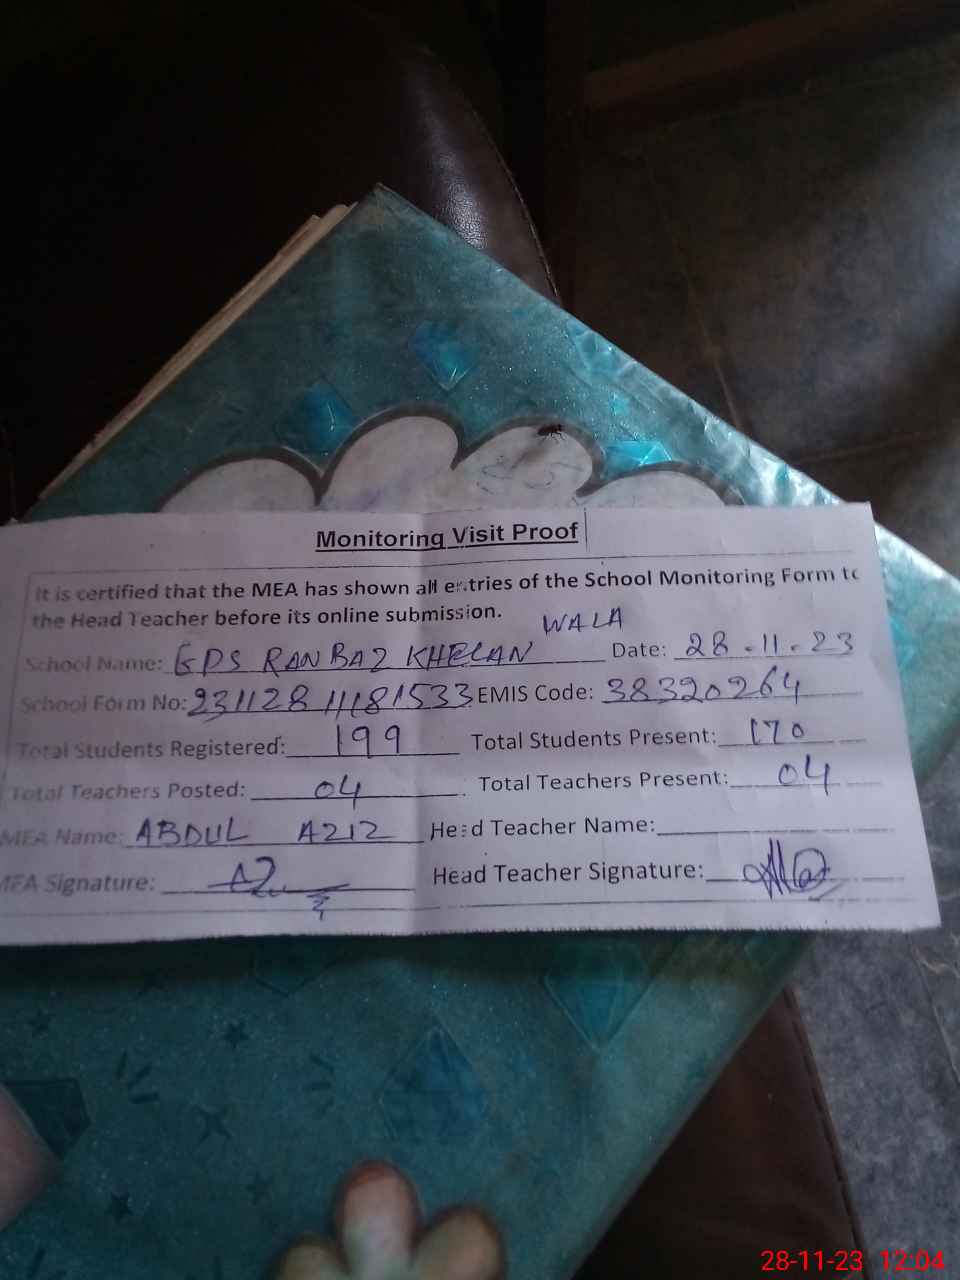 Monitoring Visit Proof
It is certified that the MEA has shown all entries of the School Monitoring Form to
the Head Teacher before its online submission.
WALA
School Name: GPS RANBAZ KHELAN Date: 28-11-23
School Form No: 23112811181533 EMIS Code: 38320264
Total Students Registered: 199 Total Students Present: 170
Total Teachers Posted: 04 Total Teachers Present: 04
MEA Name: ABDUL AZIZ Head Teacher Name:
MEA Signature: Head Teacher Signature:
28-11-23 12:04